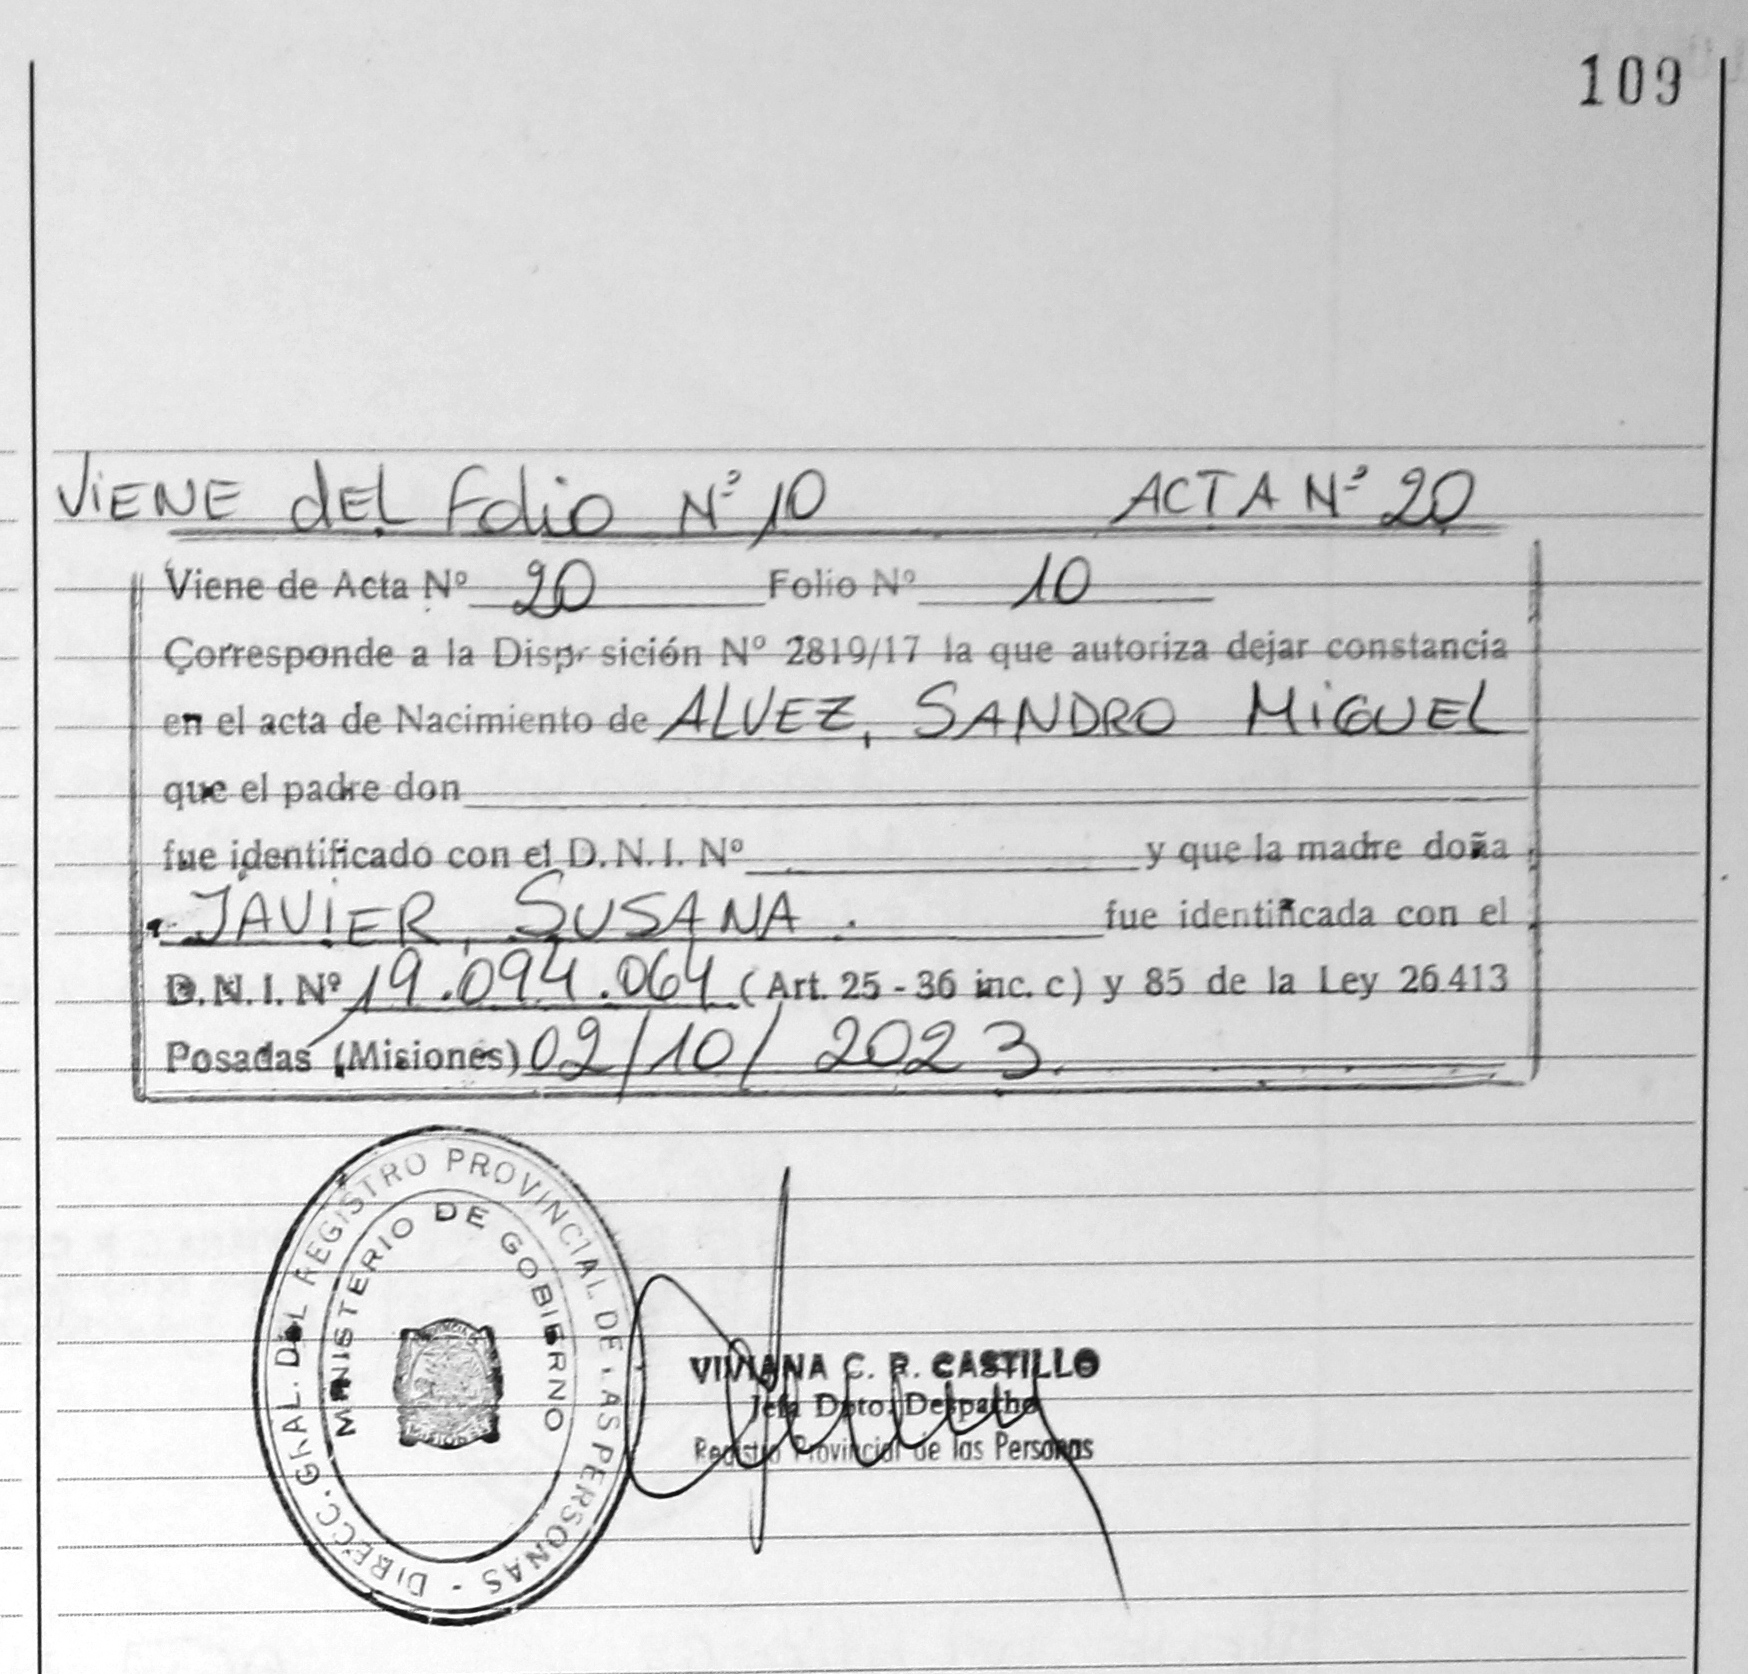 109
ViENE dEL Folio Nº 10 ACTA Nº 20
Viene de Acta Nº 20 Folio Nº 10
Corresponde a la Disposición Nº 2819/17 la que autoriza dejar constancia
en el acta de Nacimiento de ALVEZ, SANDRO MiGUEL
que el padre don
fue identificado con el D.N.I. Nº y que la madre doña
JAViER, SUSANA. fue identificada con el
D.N.I. Nº 19.094.064 (Art. 25 - 36 inc. c) y 85 de la Ley 26413
Posadas (Misiones) 02/10/2023.
DIRECC. GRAL. DEL REGISTRO PROVINCIAL DE LAS PERSONAS -
MINISTERIO DE GOBIERNO
PROVINCIA DE
MISIONES
VIVIANA C. R. CASTILLO
Jefa Dpto. Despacho
Registro Provincial de las Personas